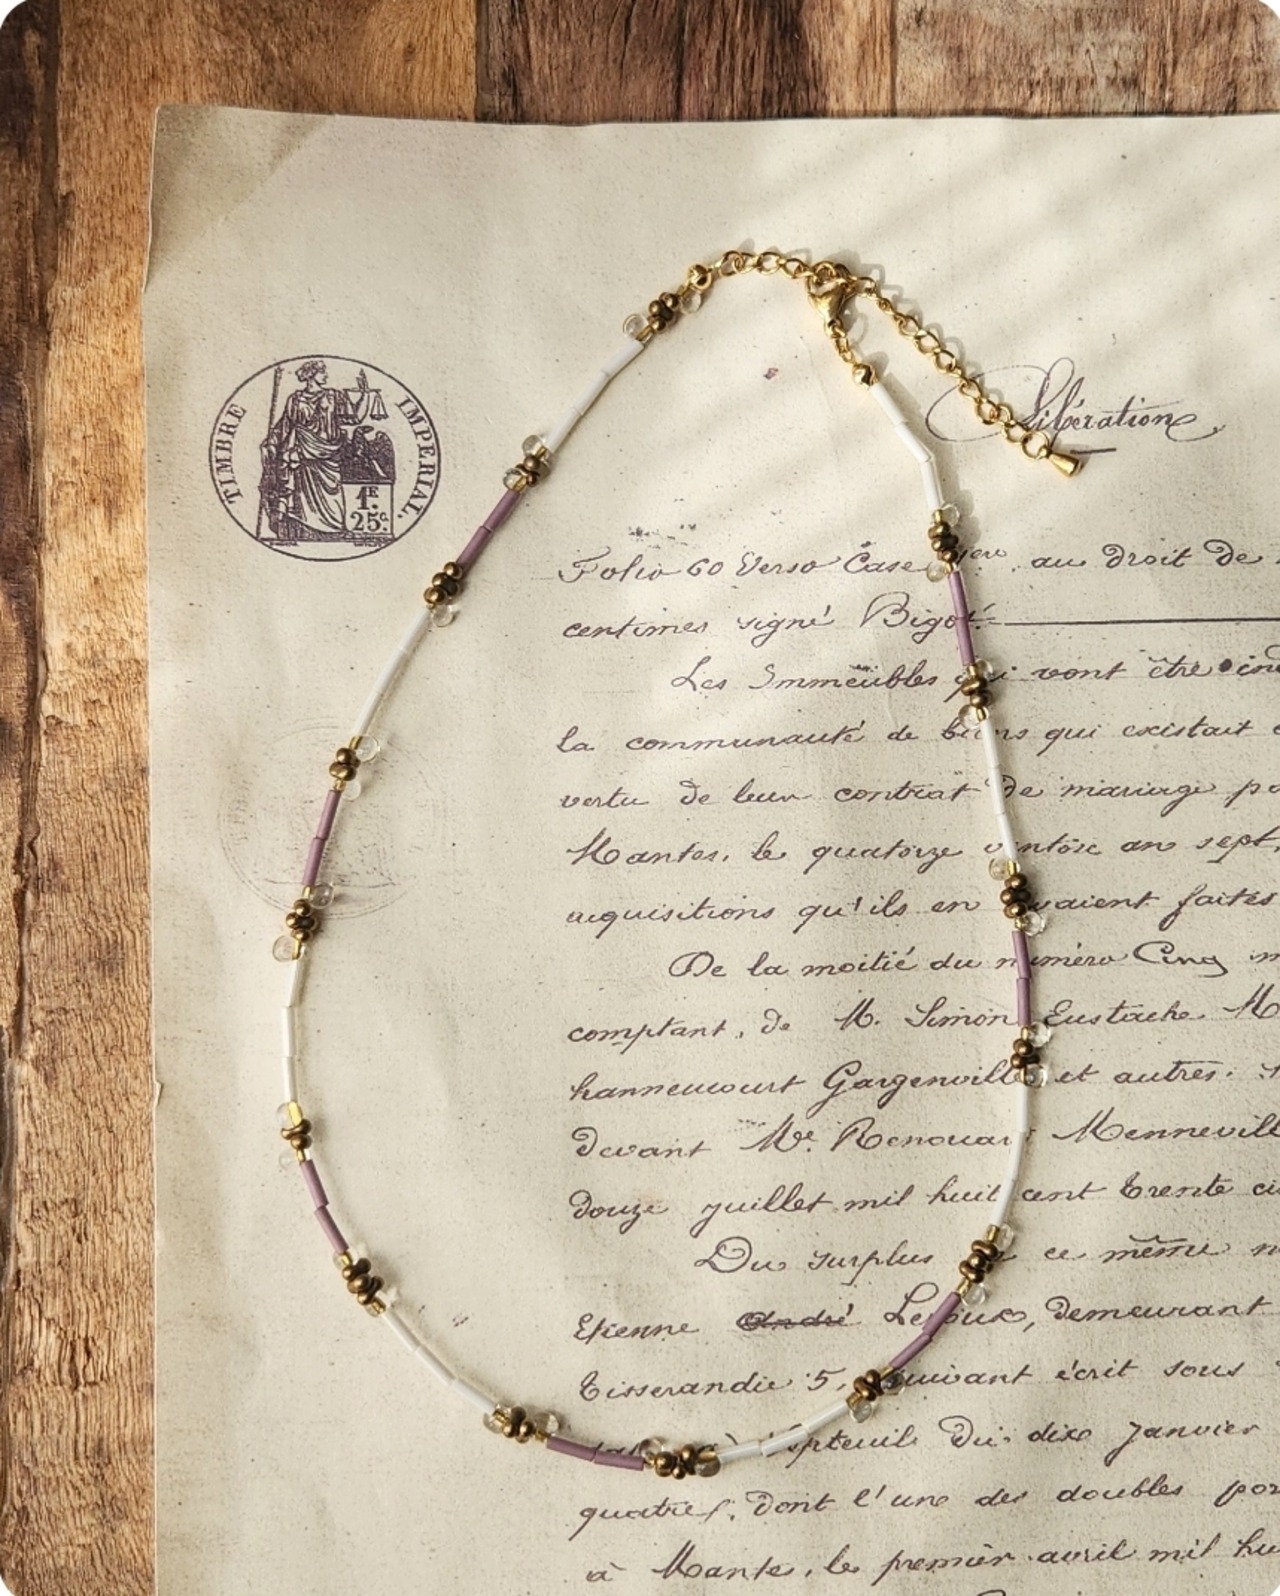 TIMBRE IMPERIAL.
1F.
25c.
Libération
Folio 60 Verso Case au droit de
centimes signé Bigot
Les Immeubles qui vont être
la communauté de biens qui existait
vertu de leur contrat de mariage
Mantes, le quatorze ventôse an sept,
acquisitions qu'ils en avaient faites
De la moitié du numéro Cinq
comptant, de M. Simon Eustache
hanneucourt Gargenville et autres.
devant Me. Renouard Menneville
douze juillet mil huit cent trente
Du surplus de ce même
Etienne André Leroux, demeurant
Tisserandie 5, suivant écrit sous
Septeuil du dix Janvier
quatre, dont l'une des doubles
à Mante, le premier avril mil